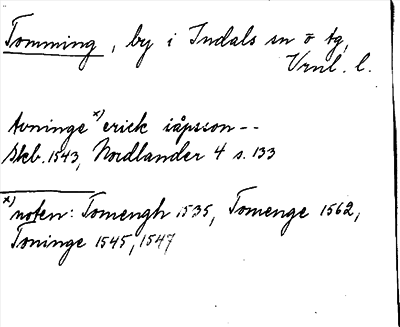 Tomming, by i Indals sn ö tg,
Vrnl. l.
Avninge x) erick iåpsson --
Skb. 1543, Nordlander 4 s. 133
x) noten: Tomengh 1535, Tomenge 1562,
Toninge 1545, 1547